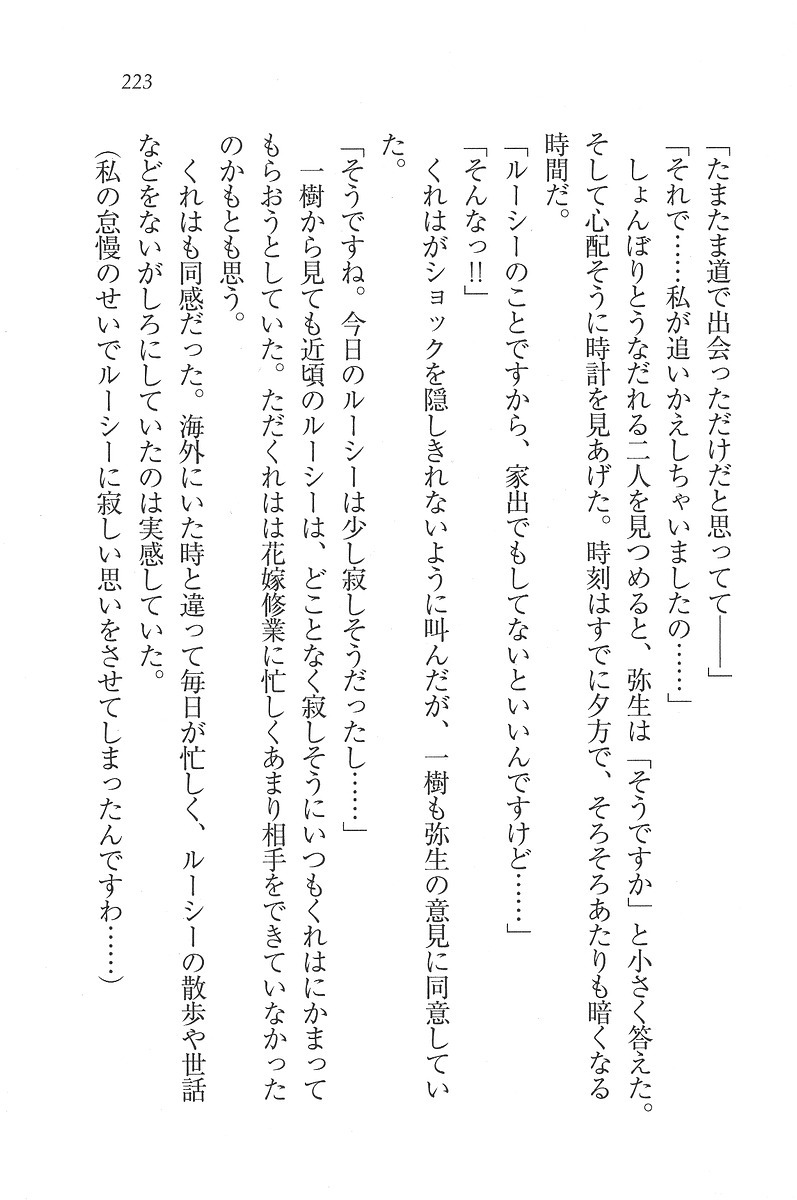 223
「たまたま道で出会っただけだと思ってて――」
「それで……私が追いかえしちゃいましたの……」
しょんぼりとうなだれる二人を見つめると、弥生は「そうですか」と小さく答えた。
そして心配そうに時計を見あげた。時刻はすでに夕方で、そろそろあたりも暗くなる
時間だ。
「ルーシーのことですから、家出でもしてないといいんですけど……」
「そんなっ!!」
くれはがショックを隠しきれないように叫んだが、一樹も弥生の意見に同意してい
た。
「そうですね。今日のルーシーは少し寂しそうだったし……」
一樹から見ても近頃のルーシーは、どことなく寂しそうにいつもくれはにかまって
もらおうとしていた。ただくれはは花嫁修業に忙しくあまり相手をできていなかった
のかもとも思う。
くれはも同感だった。海外にいた時と違って毎日が忙しく、ルーシーの散歩や世話
などをないがしろにしていたのは実感していた。
(私の怠慢のせいでルーシーに寂しい思いをさせてしまったんですわ……)